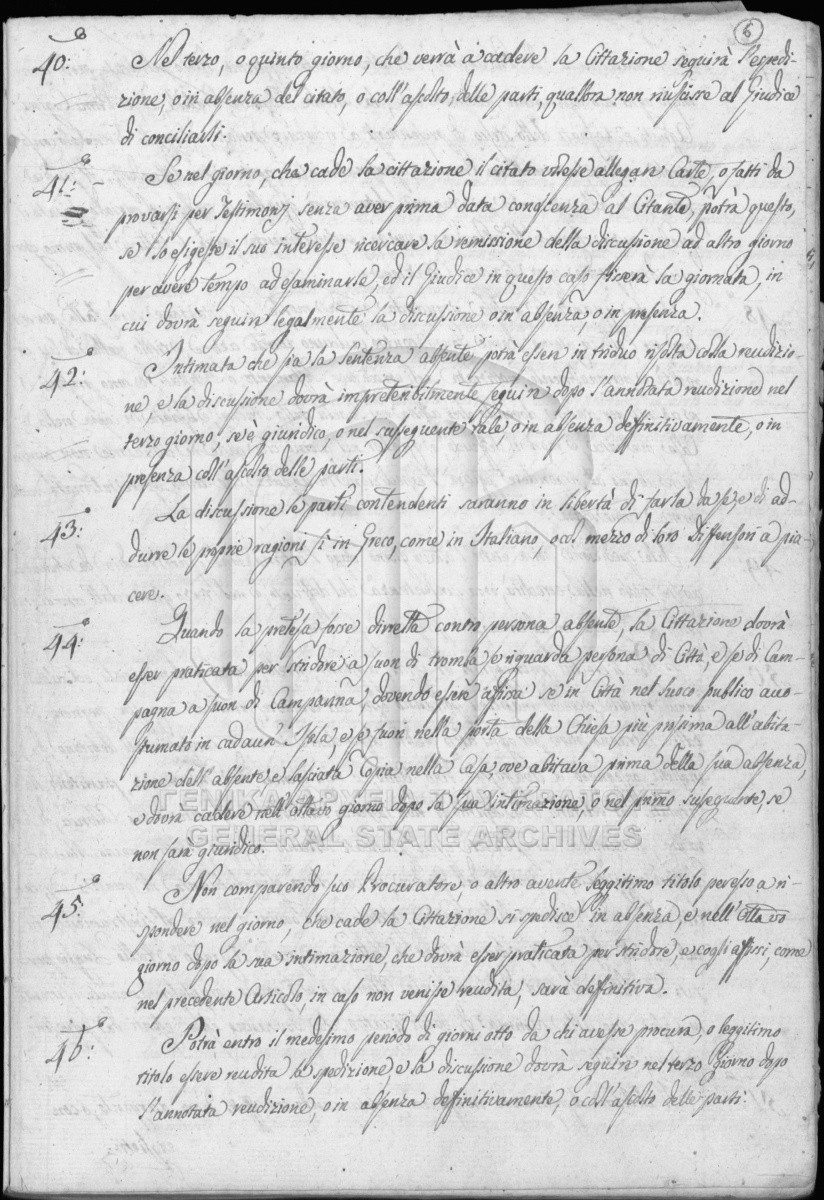 6
40: Nel terzo, o quinto giorno, che verrà à cadere la Cittazione seguirà l'espedi-
zione, o in absenza del citato, o coll'ascolto delle parti, quallora non riuscisse al Giudice
di conciliarli.
41: Se nel giorno, che cade la cittazione il citato volesse allegare Carte, o fatti da
provarsi per Testimonj senza aver prima data conoscenza al Citante, potrà questo,
se lo esigesse il suo interesse ricercare la remissione della discussione ad altro giorno
per avere tempo ad esaminarle, ed il Giudice in questo caso fisserà la giornata, in
cui dovrà seguir legalmente la discussione o in absenza, o in presenza.
42: Intimata che sia la sentenza absente potrà esser in triduo risolta colla reudizio-
ne, e la discussione dovrà impreteribilmente seguir dopo l'annotata reudizione nel
terzo giorno, se è giuridico, o nel susseguente tale, o in absenza deffinitivamente, o in
presenza coll'ascolto delle parti.
43: La discussione le parti contendenti saranno in libertà di farla da se, e di ad-
durre le proprie ragioni sì in Greco, come in Italiano, o col mezzo di loro Diffensori a pia-
cere.
44: Quando la pretesa fosse dirretta contro persona absente, la Cittazione dovrà
esser praticata per stridore a suon di tromba se riguarda persona di Città, e se di Cam-
pagna a suon di Campanna, dovendo essere affissa se in Città nel luoco publico acco-
stumato in cadaun' Isola, e se fuori nella porta della Chiesa più prossima all'abita-
zione dell'absente e lasciata Copia nella Casa, ove abitava prima della sua absenza,
e dovrà cadere nell'ottavo giorno dopo la sua intimazione, o nel primo susseguente, se
non sarà giuridico.
45: Non comparendo suo Procuratore, o altro avente leggitimo titolo per esso a ri-
spondere nel giorno, che cade la Cittazione si spedisce in absenza, e nell'Ottavo
giorno dopo la sua intimazione, che dovrà esser praticata per stridore, e cogli affissi, come
nel precedente Articolo, in caso non venisse reudita, sarà deffinitiva.
46: Potrà entro il medesimo periodo di giorni otto da chi avesse procura, o leggitimo
titolo essere reudita la spedizione, e la discussione dovrà seguir nel terzo Giorno dopo
l'annotata reudizione, o in absenza deffinitivamente, o coll'ascolto delle parti.
ΓΕΝΙΚΑ ΑΡΧΕΙΑ ΤΟΥ ΚΡΑΤΟΥΣ
GENERAL STATE ARCHIVES